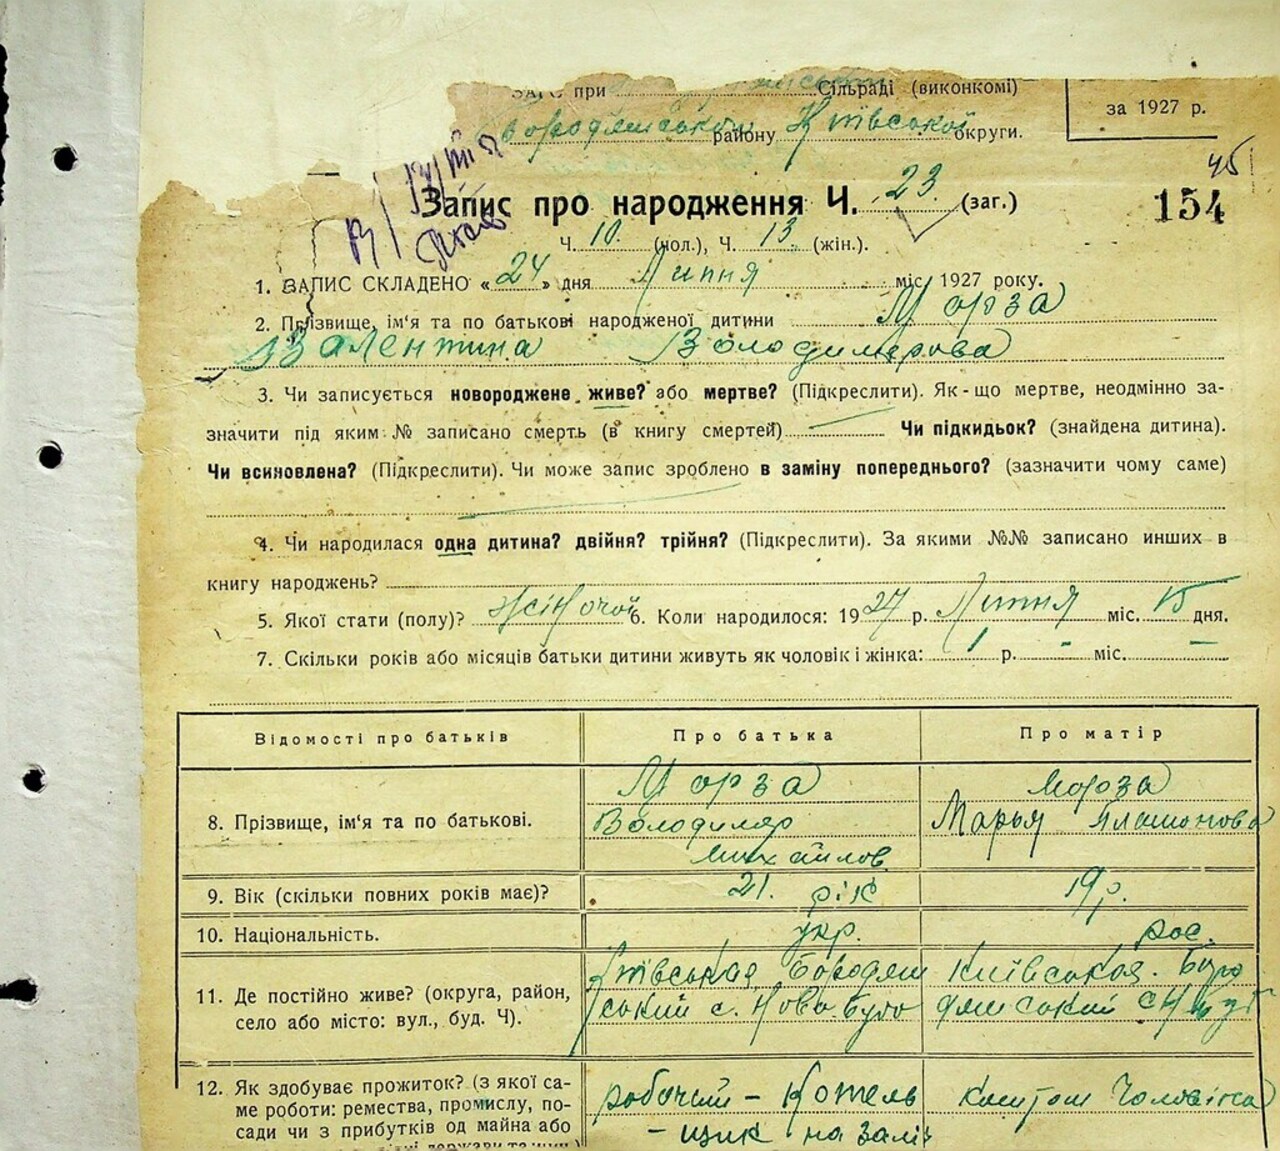 ЗАГС при Сільраді (виконкомі)
Бородянської району Київської округи.
за 1927 р.
45
Запис про народження Ч. 23 (заг.)
154
Ч. 10. (чол.), Ч. 13. (жін.).
1. ЗАПИС СКЛАДЕНО « 24 » дня Липня міс. 1927 року.
2. Прізвище, ім'я та по батькові народженої дитини Морза
Валентина Володимерова
3. Чи записується новороджене живе? або мертве? (Підкреслити). Як-що мертве, неодмінно за-
значити під яким № записано смерть (в книгу смертей) Чи підкидьок? (знайдена дитина).
Чи всиновлена? (Підкреслити). Чи може запис зроблено в заміну попереднього? (зазначити чому саме)
4. Чи народилася одна дитина? двійня? трійня? (Підкреслити). За якими №№ записано инших в
книгу народжень?
5. Якої стати (полу)? Жіночої 6. Коли народилося: 1927 р. Липня міс. 15 дня.
7. Скільки років або місяців батьки дитини живуть як чоловік і жінка: 1 р. - міс. -
Відомості про батьків Про батька Про матір
8. Прізвище, ім'я та по батькові. Морза Володимер Михайлов Мороза Марья
9. Вік (скільки повних років має)? 21. рік 19 р.
10. Національність. укр. рос.
11. Де постійно живе? (округа, район, Київська, Бородян Київська. Боро
село або місто: вул., буд. Ч). ський с. Нова Буда дянський с Н Буд
12. Як здобуває прожиток? (з якої са- робочий – Котель Коштом Чоловіка
ме роботи: ремества, промислу, по- - щик на заліз
сади чи з прибутків од майна або